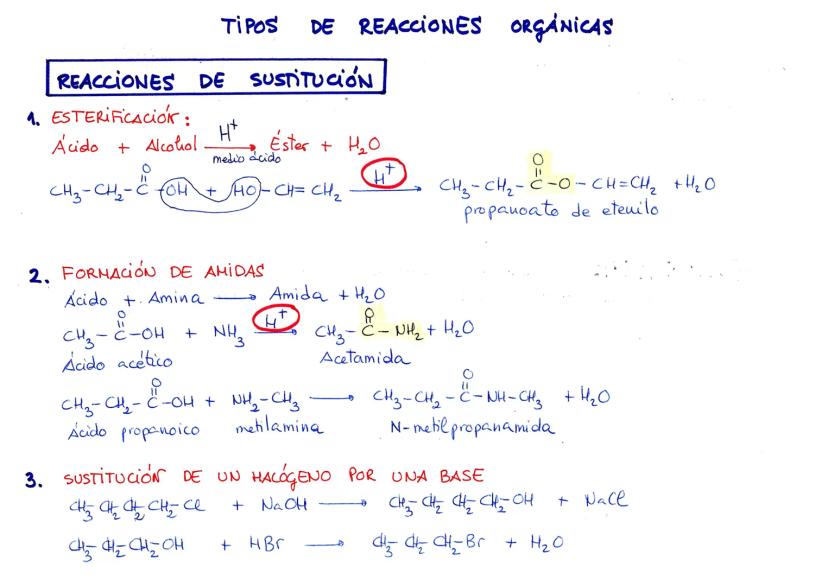 TIPOS DE REACCIONES ORGÁNICAS
REACCIONES DE SUSTITUCIÓN
1. ESTERIFICACIÓN:
Ácido + Alcohol H⁺ medio ácido → Éster + H₂O
O O
CH₃-CH₂-C-OH + HO-CH=CH₂ H⁺ → CH₃-CH₂-C-O-CH=CH₂ + H₂O
propanoato de etenilo
2. FORMACIÓN DE AMIDAS
Ácido + Amina → Amida + H₂O
O O
CH₃-C-OH + NH₃ H⁺ → CH₃-C-NH₂ + H₂O
Ácido acético Acetamida
O O
CH₃-CH₂-C-OH + NH₂-CH₃ → CH₃-CH₂-C-NH-CH₃ + H₂O
Ácido propanoico metilamina N-metilpropanamida
3. SUSTITUCIÓN DE UN HALÓGENO POR UNA BASE
CH₃-CH₂-CH₂-CH₂-Cl + NaOH → CH₃-CH₂-CH₂-CH₂-OH + NaCl
CH₃-CH₂-CH₂-OH + HBr → CH₃-CH₂-CH₂-Br + H₂O